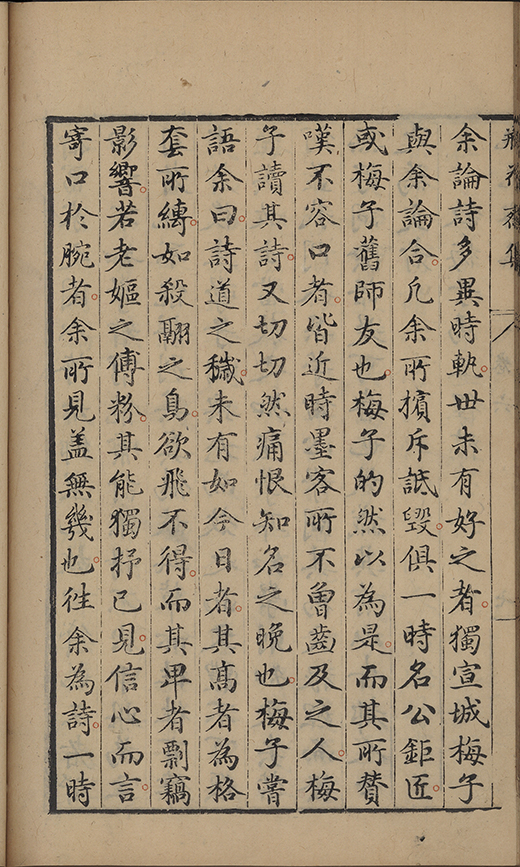 瓶花齋集
余論詩多異時軌世未有好之者。獨宣城梅子
與余論合。凡余所擯斥詆毀。俱一時名公鉅匠。
或梅子舊師友也。梅子的然以為是。而其所贊
嘆不容口者。皆近時墨客所不曾齒及之人。梅
子讀其詩。又切切然痛恨知名之晚也。梅子嘗
語余曰。詩道之穢。未有如今日者。其高者為格
套所縳。如殺翮之鳥。欲飛不得。而其卑者。剽竊
影響。若老嫗之傅粉。其能獨抒已見。信心而言。
寄口於腕者。余所見盖無幾也。徃余為詩。一時